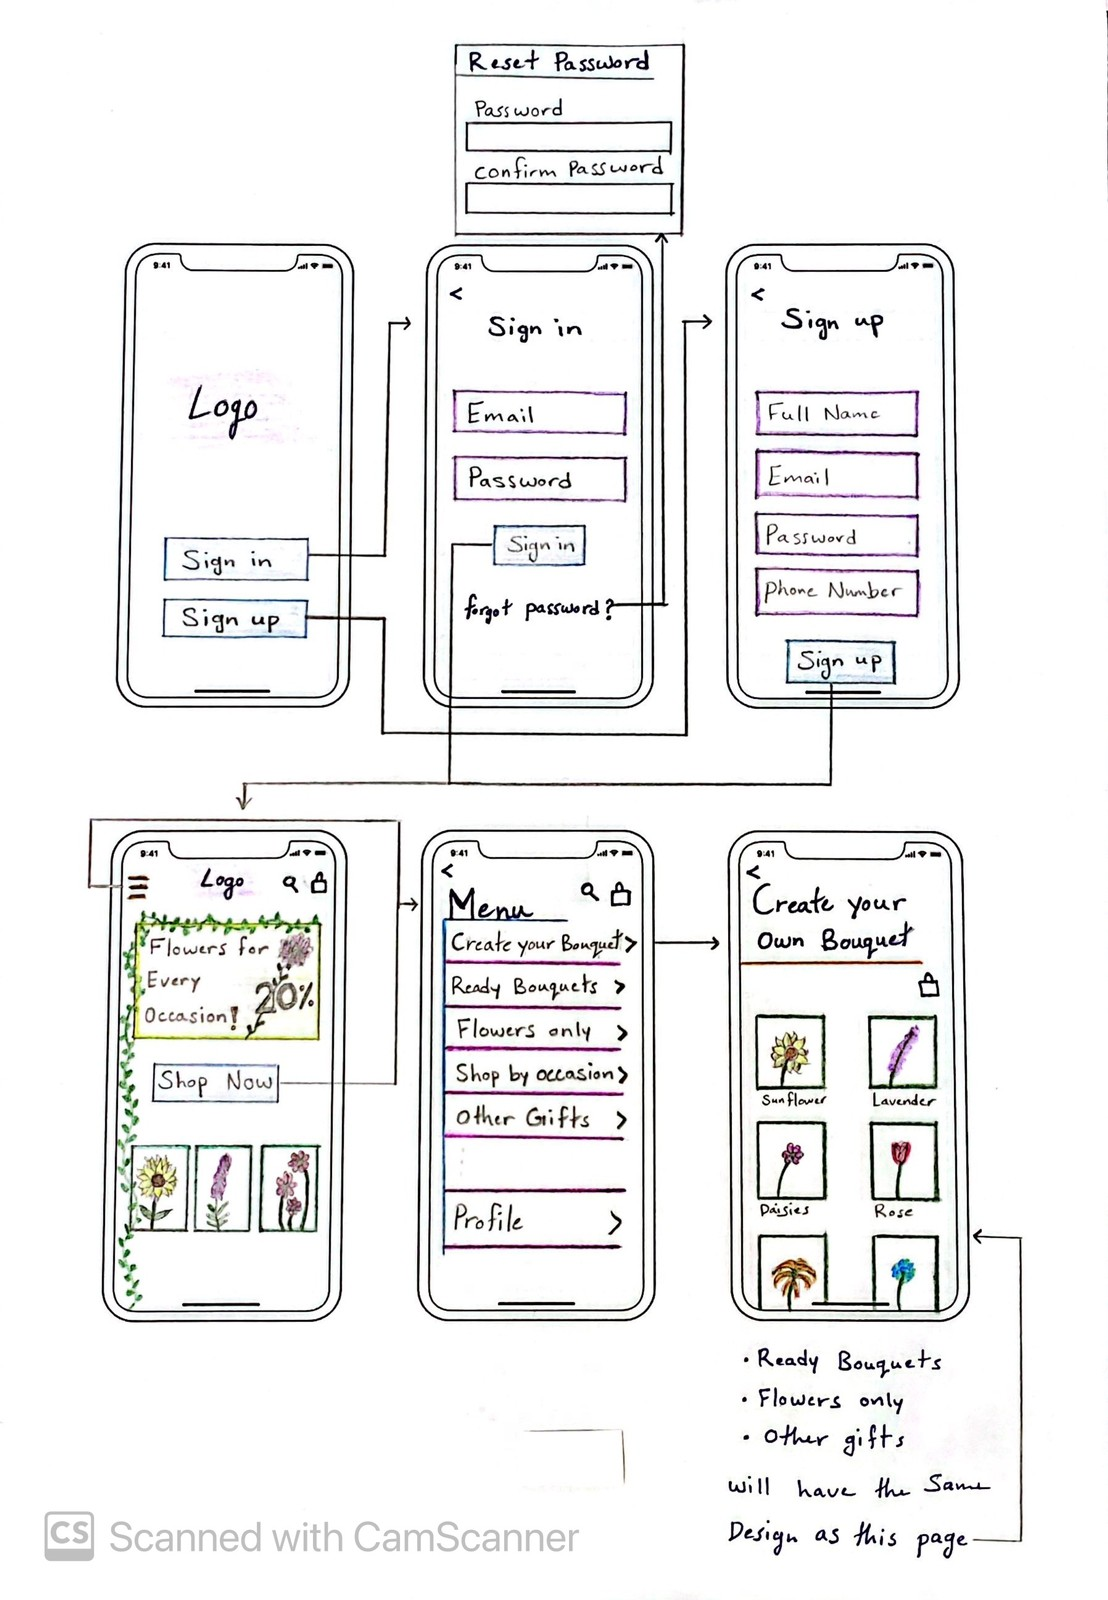 Reset Password
Password
Confirm Password
9:41
Logo
Sign in
Sign up
9:41
<
Sign in
Email
Password
Sign in
forgot password?
9:41
<
Sign up
Full Name
Email
Password
Phone Number
Sign up
9:41
Logo
Flowers for
Every
Occasion!
20%
Shop Now
9:41
<
Menu
Create your Bouquet >
Ready Bouquets >
Flowers only >
Shop by occasion >
Other Giifts >
Profile >
9:41
<
Create your
Own Bouquet
Sunflower
Lavender
Daisies
Rose
• Ready Bouquets
• Flowers only
• Other gifts
will have the Same
Design as this page
CS Scanned with CamScanner